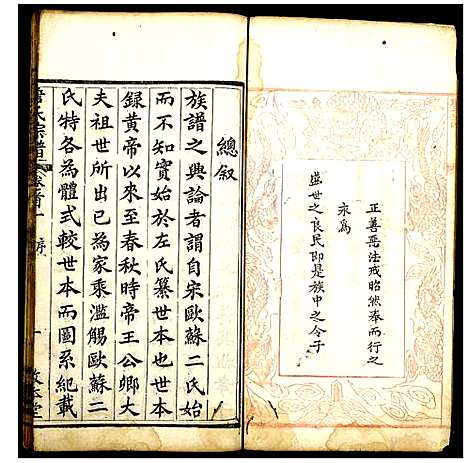 正善惡法戒昭然奉而行之
永為
盛世之良民即是族中之令子
總叙
族譜之興論者謂自宋歐蘇二氏始
而不知實始於左氏纂世本也世本
録黃帝以來至春秋時帝王公卿大
夫祖世所出已為家乘濫觴歐蘇二
氏特各為體式較世本而圖系紀載
氏宗譜 卷首一 序 一 敦本堂